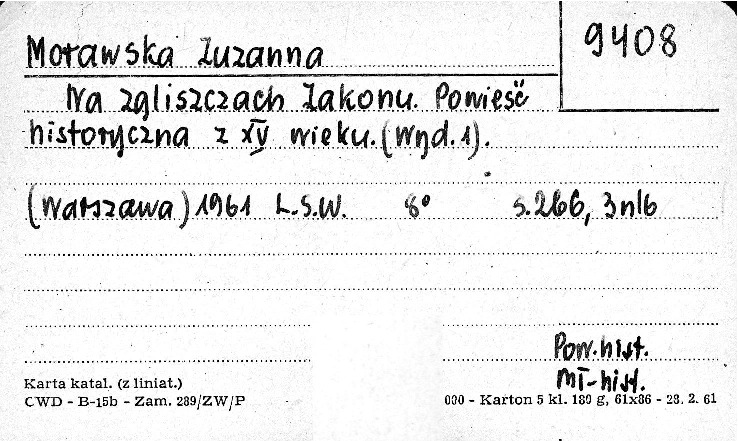 9408
Morawska Zuzanna
Na zgliszczach Zakonu. Powieść
historyczna z XV wieku. (Wyd. 1).
(Warszawa) 1961 L.S.W. 8° s. 266, 3 nlb
Pow. hist.
Mł-hist.
Karta katal. (z liniat.)
CWD - B-15b - Zam. 289/ZW/P
000 - Karton 5 kl. 180 g, 61x86 - 28. 2. 61